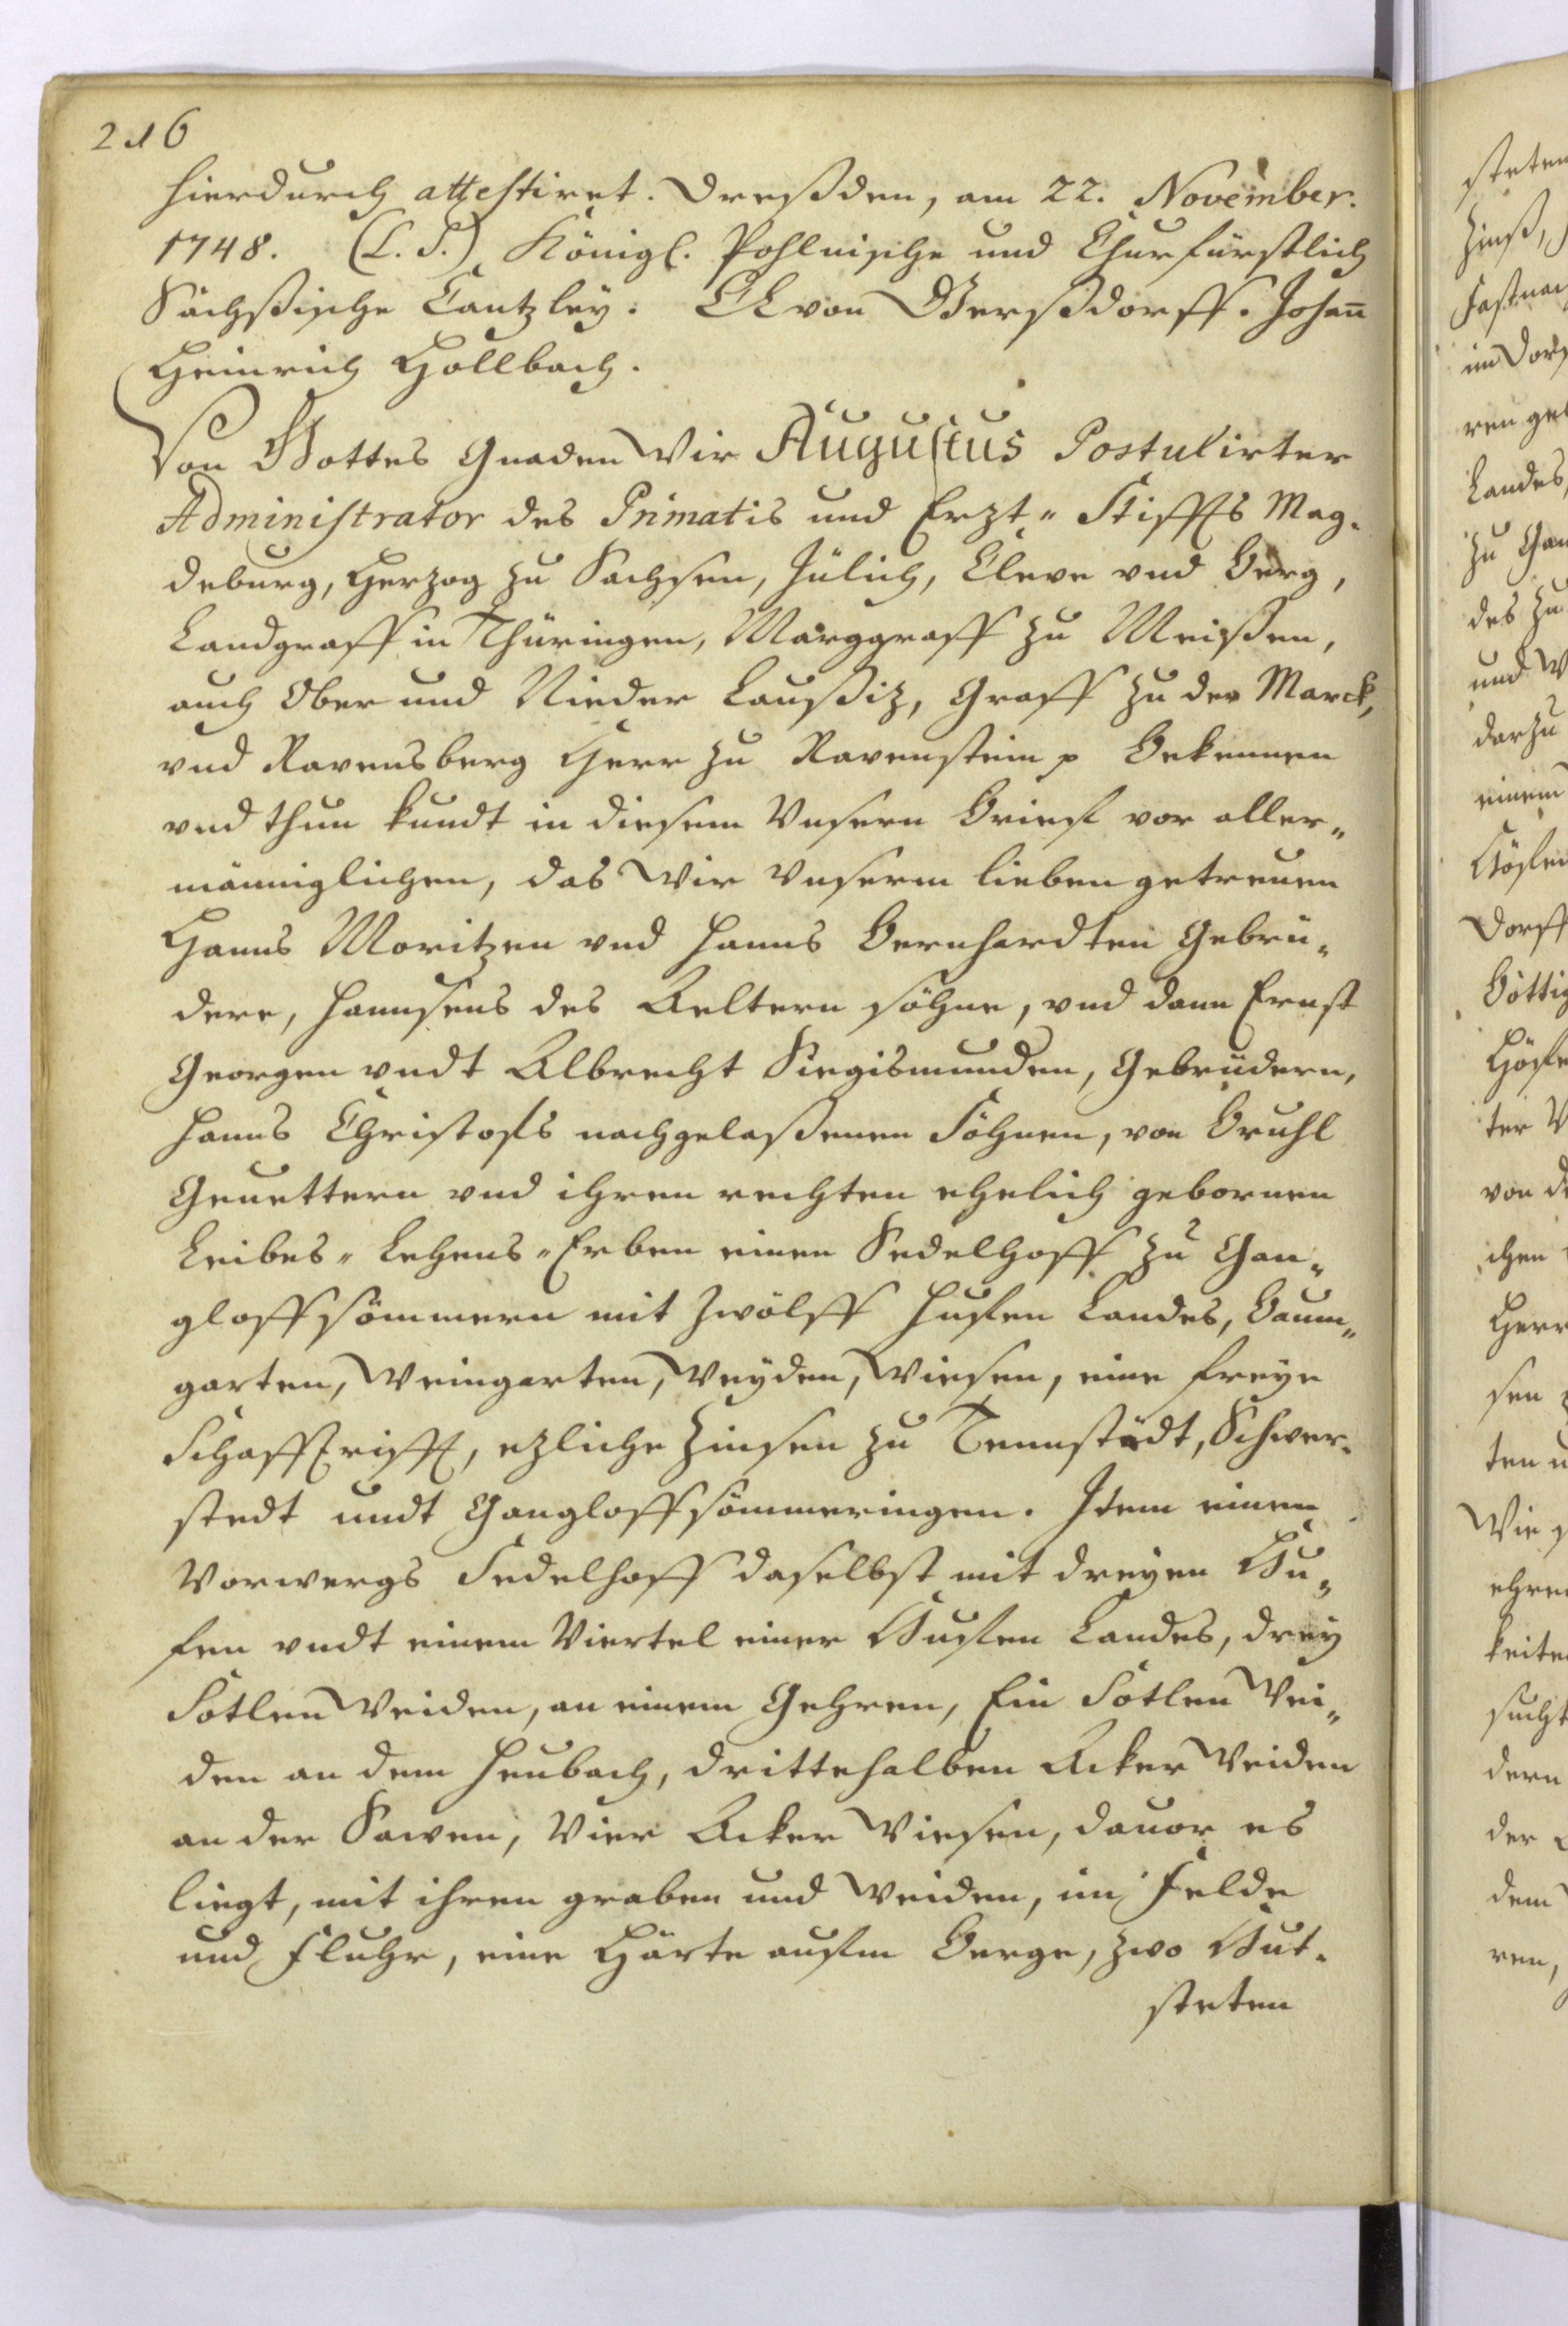 216
hierdurch attestiret. Dreßden, am 22. November.
1748. (L. S.) Königl. Pohlnische und Churfürstlich
Sächßische Cantzley. von Gerßdorff. Johan̄
Heinrich Hollbach.
Von Gottes Gnaden Wir Augustus Postulirter
Administrator des Primatis und Erzt„ Stiffts Mag„
deburg, Herzog zu Sachsen, Jülich, Cleve vnd Berg,
Landgraff in Thüringen, Marggraff zu Meißen,
auch Ober und Nieder Laußiz, Graff zu der Marck,
vnd Ravensberg Herr zu Ravenstein p Bekennen
vnd thun kundt in diesem Vnsern Brief vor aller„
männiglichen, das Wir Vnserm lieben getreuen
Hanns Moritzen vnd Hanns Bernhardten Gebrü„
dere, Hannsens des Aeltern söhne, vnd dann Ernst
Georgen vndt Albrecht Siegismunden, Gebrüdern,
Hanns Christofs nachgelaßenen Söhnen, von Bruhl
Geuettern vnd ihren rechten ehelich gebornen
Leibes„ Lehens„ Erben einen Sedelhoff zu Gan„
gloffsömmern mit zwölff Hufen Landes, Baum„
garten, Weingarten, Weyden, Wiesen, eine freye
Schafftrifft, ezliche Zinsen zu Tennstädt, Schwer„
stedt undt Gangloffsömmeringen. Item einen
Vorwergs Sedelhoff daselbst mit dreyen Hu„
fen vndt einem Viertel einer Hufen Landes, drey
Sotlen Weiden, an einem Gehren, Ein Sotlen Wei„
den an dem Heubach, drittehalben Acker Weiden
an der Sawen, Vier Acker Wiesen, dauor es
liegt, mit ihren graben und Weiden, im Felde
und Fluhr, eine Härte aufm Berge, zwo Hut„
steten
steten
Zinß,
Fastnach
im Dorf
ren gel
Landes,
zu Gan
des zu
und W
darzu
einem
Dorff
Höfe
ter V
von d
chen
Herr
sen
ten u
Wie
ehren
keiten
sucht
dern
der
dem
ren,